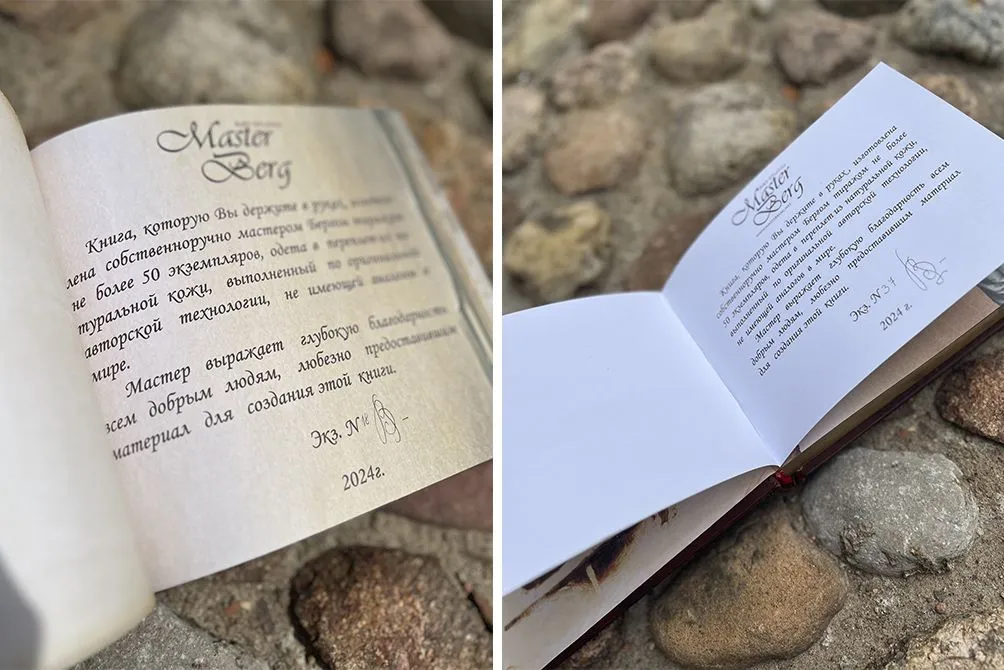 Master
Berg
Книга, которую Вы держите в руках,
лена собственноручно мастером Бергом тиражом
не более 50 экземпляров, одета в переплет из на-
туральной кожи, выполненный по оригинальной
авторской технологии, не имеющей аналогов в
мире.
Мастер выражает глубокую благодарность
всем добрым людям, любезно предоставившим
материал для создания этой книги.
Экз. N
2024г.
Master
Berg
Книга, которую Вы держите в руках, изготовлена
собственноручно мастером Бергом тиражом не более
50 экземпляров, одета в переплет из натуральной кожи,
выполненный по оригинальной авторской технологии,
не имеющей аналогов в мире.
Мастер выражает глубокую благодарность всем
добрым людям, любезно предоставившим материал
для создания этой книги.
Экз. N 37
2024 г.